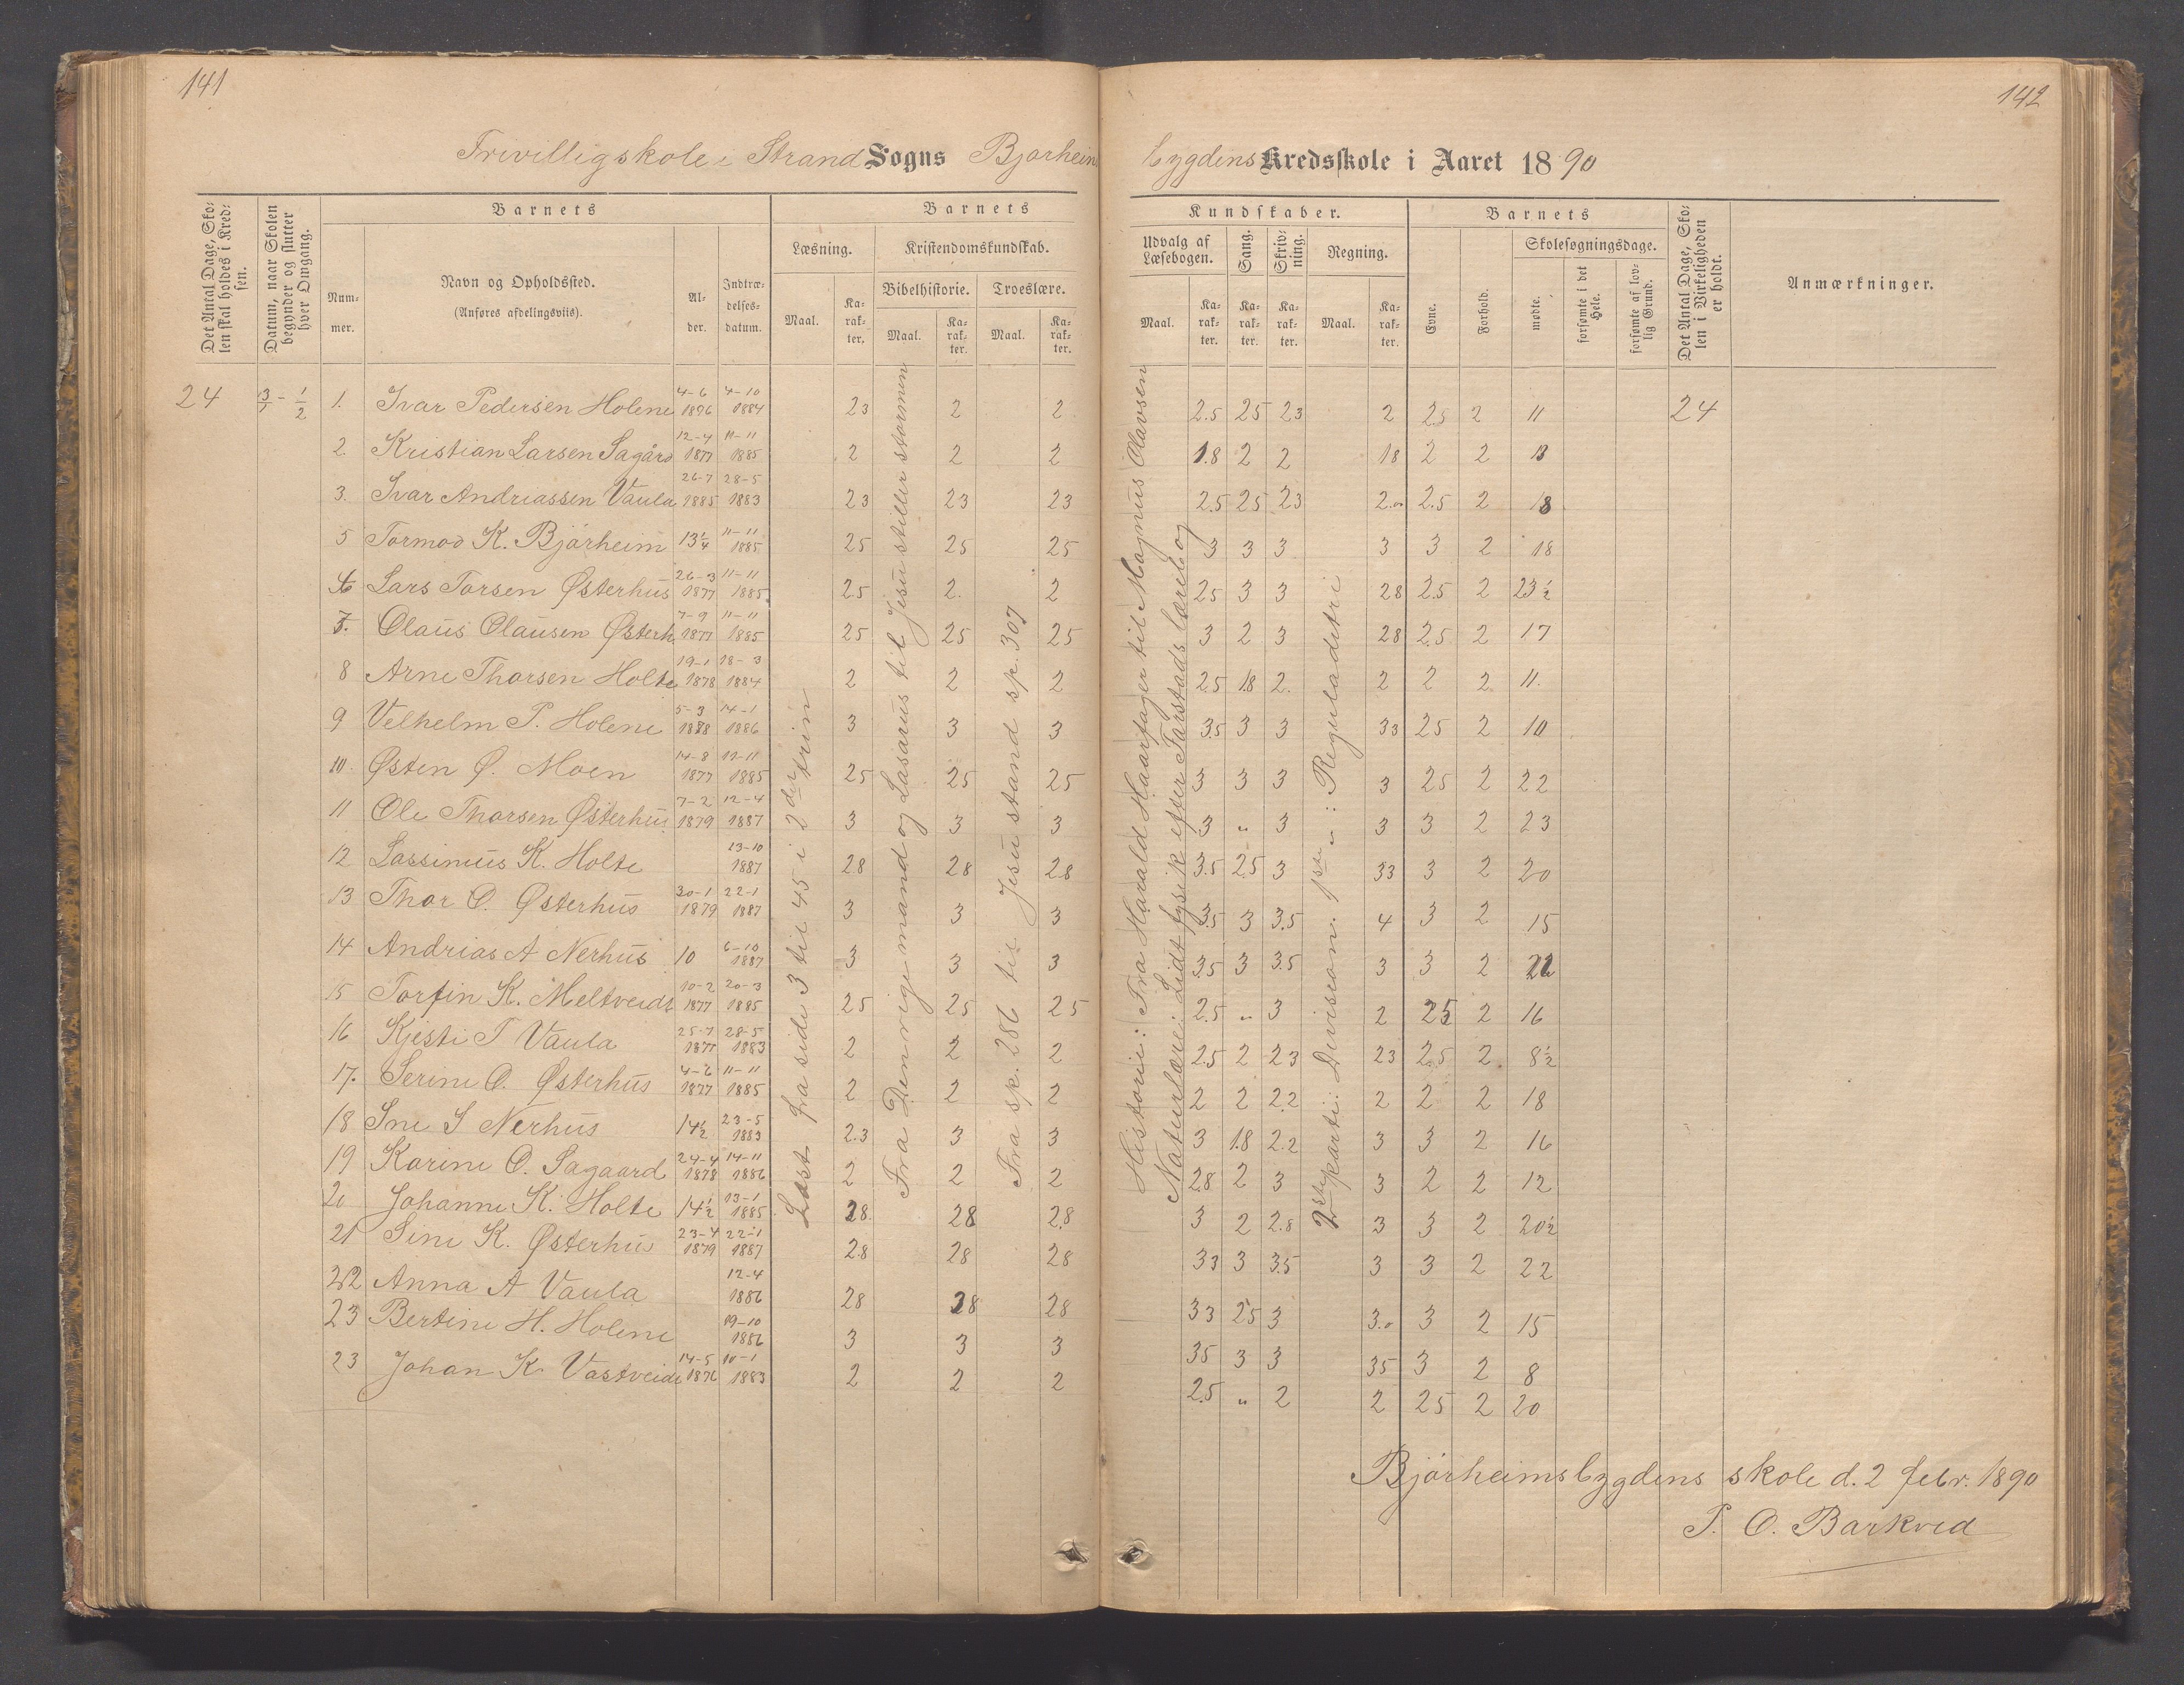 141
142
Frivilligskole i Strand Sogns Bjørheims
bygdens Kredsskole i Aaret 1890
Det Antal Dage, Skolen skal holdes i Kredsen.
Datum, naar Skolen begynder og slutter hver Omgang.
Barnets
Nummer.
Navn og Opholdssted.
(Anføres afdelingsviis).
Alder.
Indtrædelsesdatum.
Barnets
Læsning.
Kristendomskundskab.
Bibelhistorie.
Troeslære.
Maal.
Karakter.
Maal.
Karakter.
Maal.
Karakter.
Kundskaber.
Udvalg af Læsebogen.
Sang.
Skrivning.
Regning.
Maal.
Karakter.
Karakter.
Karakter.
Maal.
Karakter.
Barnets
Evne.
Forhold.
Skolesøgningsdage.
mødte.
forsømte i det Hele.
forsømte af lovlig Grund.
Det Antal Dage, Skolen i Virkeligheden er holdt.
Anmærkninger.
24 3/1 - 1/2 1. Ivar Pedersen Holene 4-6 1876 4-10 1884 23 2 2 2.5 25 23 2 2.5 2 11 24
2. Kristian Larsen Sagård 12-4 1877 11-11 1885 2 2 2 1.8 2 2 18 2 2 13
3. Ivar Andreassen Vaula 26-7 1885 28-5 1883 23 23 23 2.5 25 23 2.0 2.5 2 18
5 Tormod K. Bjørheim 13 1/4 11-11 1885 25 25 25 3 3 3 3 3 2 18
6 Lars Torsen Østerhus 26-3 1877 11-11 1885 25 2. 2 25 3 3 28 2.5 2 23 1/2
7. Olaus Olausen Østerh 7-9 1877 11-11 1885 25 25 25 3 2 3 28 2.5 2 17
8 Arne Thorsen Holte 19-1 1878 18-3 1884 2 2 2 2.5 1.8 2. 2 2 2 11.
9 Velhelm P. Holene 5-3 1888 14-1 1886 3 3 3 3.5 3 3 33 25 2 10
10. Østen Ø. Moen 14-8 1877 11-11 1885 25 25 25 3 3 3 3 25 2 22
11 Ole Thorsen Østerhus 7-2 1879 12-4 1887 3 3 3 3 " 3 3 3 2 23
12 Lassinius K. Holte 13-10 1887 28 28 28 3.5 2.5 3 33 3 2 20
13 Thor O. Østerhus 30-1 1879 22-1 1887 3 3 3 3.5 3 3.5 4 3 2 15
14 Andrias A Nerhus 10 6-10 1887 3 3 3 3.5 3 3.5 3 3 2 22
15 Torfin K. Meltveidt 10-2 1877 20-3 1885 25 25 25 2.5 " 3 2 25 2 16
16 Kjesti T Vaula 25-7 1877 28-5 1883 2 2 2 2.5 2 23 23 2.5 2 8 1/2
17. Serine O. Østerhus 4-6 1877 11-11 1885 2 2 2 2 2 2.2 2 2 2 18
18 Ine S Nerhus 14 1/2 23-5 1883 2.3 3 3 3 1.8 2.2 3 3 2 16
19 Karine O. Sagaard 24-4 1878 14-11 1886 2 2 2 28 2 3 3 2 2 12
20 Johanne K. Holte 14 1/2 13-1 1885 28. 28 2.8 3 2 2.8 3 3 2 20 1/2
21 Sine K. Østerhus 23-4 1879 22-1 1887 2.8 28 28 33 3 3.5 3 3 2 22
22 Anna A Vaula 12-4 1886 28 28 28 33 25 3 3.0 3 2 15
23 Bertine H. Holene 19-10 1886 3 3 3 35 3 3 35 3 2 8
23 Johan K. Vastveidt 14-5 1876 10-1 1883 2 2 2 2.5 " 2 2 25 2 20
Læst fra side 3 til 45 i 2 den trin
Fra Den rige mand og Lasarus til Jesu stiller stormen
Fra sp. 286 til Jesu stand sp. 307
Historie: Fra Harald Haarfager til Magnus Olavsen
Naturlære: Lidt fysik efter Tarstads lærebog
2 det parti: Divison. 1 ste " : Reguladetri
Bjørheimsbygdens skole d. 2 febr. 1890
P. O. Barkved